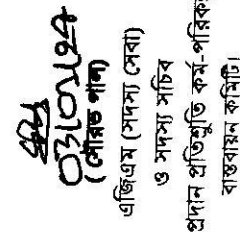 ০৩/০১/২৪
(সৌরভ পাল)
এজিএম (সদস্য সেবা)
ও সদস্য সচিব
প্রদান প্রতিশ্রুতি কর্ম-পরিক
বাস্তবায়ন কমিটি।